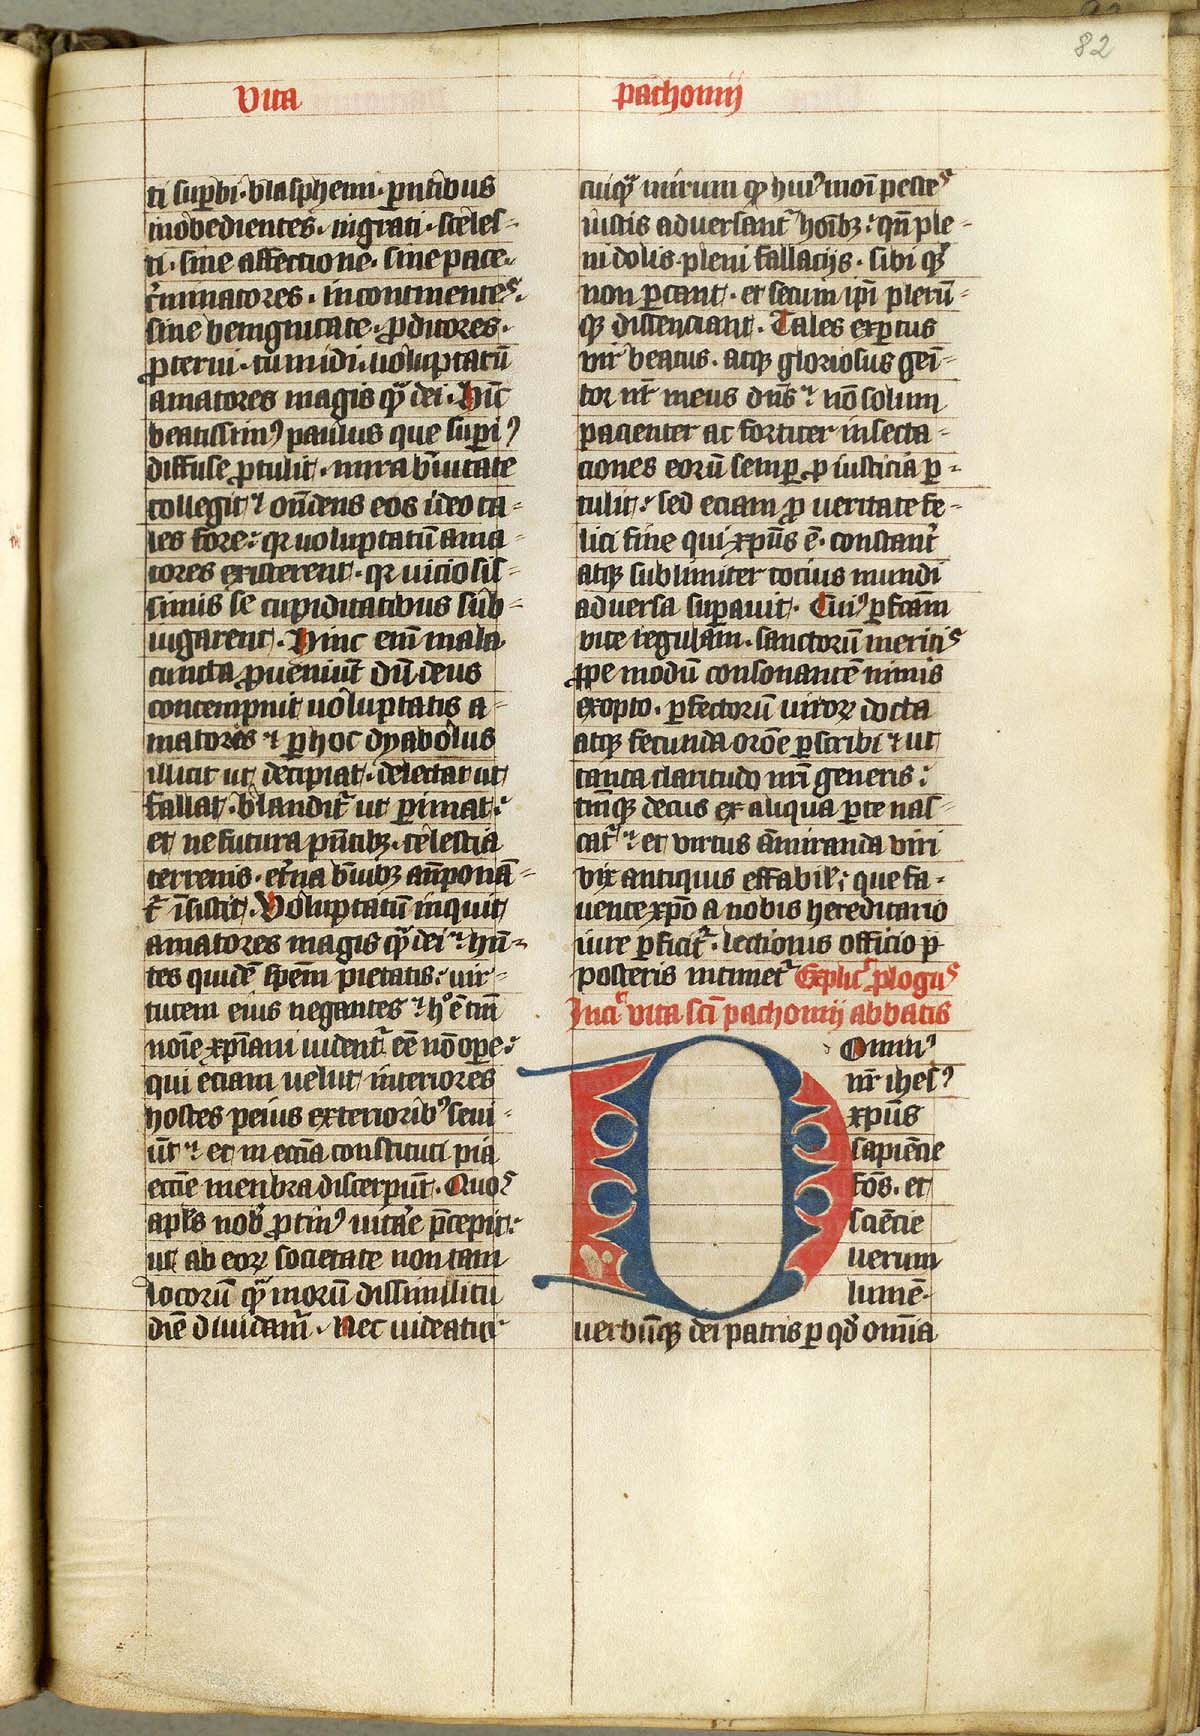 82
Vita pachomij
ti suꝑbi · blasphemi · pntibus
inobedientes · ingrati · sceles-
ti · sine affectione · sine pace ·
cͥminatores · incontinentes ·
sine benignitate · ꝓditores ·
ꝓterui · tumidi · uoluptatū
amatores magis qͣ dei · Hūc
beatissimꝰ paulus que supiꝰ
diffuse ꝓtulit · mira bͥuitate
collegit ⁊ on̄dens eos ideo ta-
les fore : qr uoluptatū ama-
tores existerent · qr uiciosis-
simis se cupiditatibus sub-
iugarent · Hinc eni mala
cuncta ꝓueniūt dū deus
contempnit uoluptatis a-
matores ⁊ ꝑ hoc dyabolus
illicit ut decipiat · delectat ut
fallat · blanditͬ ut ꝑimat :
et ne futura pn̄tibꝫ · celestia
terrenis · etͬna bͥuibꝫ an̄ponā-
tͬ īsistit · Voluptatū inquit
amatores magis qͣ dei ⁊ hn̄-
tes quidē spem pietatis : uir-
tutem eius negantes ⁊ hͦ ē tm̄
noīe xp̄iani uidentͬ eē nō oꝑe :
qui eciam uelut interiores
hostes peius exterioribꝰ seui-
ūt ⁊ et in ecc̄ia constituti pia
ecc̄ie menbra discerpūt · Quos
apl̄s nob̄ ꝓtinꝰ uitare p̄cepit :
ut ab eoꝝ societate non tam
locorū qͣ morū dissimilitu
diē diuidamͬ · Nec uideatur
cuiqͣ mirum ꝙ huiꝰmoi pestes
iustis aduersantͬ hoībꝫ : qn̄ ple-
ni dolis · pleni fallacijs · sibi qͣ
non ꝑcant · et secum ipī plerū-
qꝫ dissenciant · Tales exꝑtus
vir beatus · atqꝫ gloriosus geni-
tor nt̄ meus dn̄s ⁊ nō solum
pacienter ac fortiter insecta-
ciones eorū semꝑ ꝓ iusticia ꝑ-
tulit : sed eciam ꝓ veritate fe-
lici fine qui xp̄us ē · constantͬ
atqꝫ sublimiter tocius mundi
aduersa suꝑauit · Cuiꝰ ꝑfcam
vite regulam · sanctorū meritis
ꝓpe modū consonantē nimis
exopto · ꝑfectorū uiroꝝ docta
atqꝫ fecunda oroē ꝑscribi ⁊ ut
tanta claritudo nr̄i generis :
tm̄qꝫ decus ex aliqua ꝑte nas-
catͬ ⁊ et virtus āmiranda viri
vix antiquis effabil̄ : que fa-
uente xp̄o a nobis hereditario
iure ꝑficitͬ · lectionis officio ꝑ
posteris intimetͬ Explicͭ ꝓlogus
Incipͭ vita scī pachomij abbatis
Dominꝰ
nr̄ ihesꝰ
xp̄us
sapiēcie
fōs · et
sciēcie
verum
lumē ·
uerbūqꝫ dei patris ꝑ qd̄ omīa